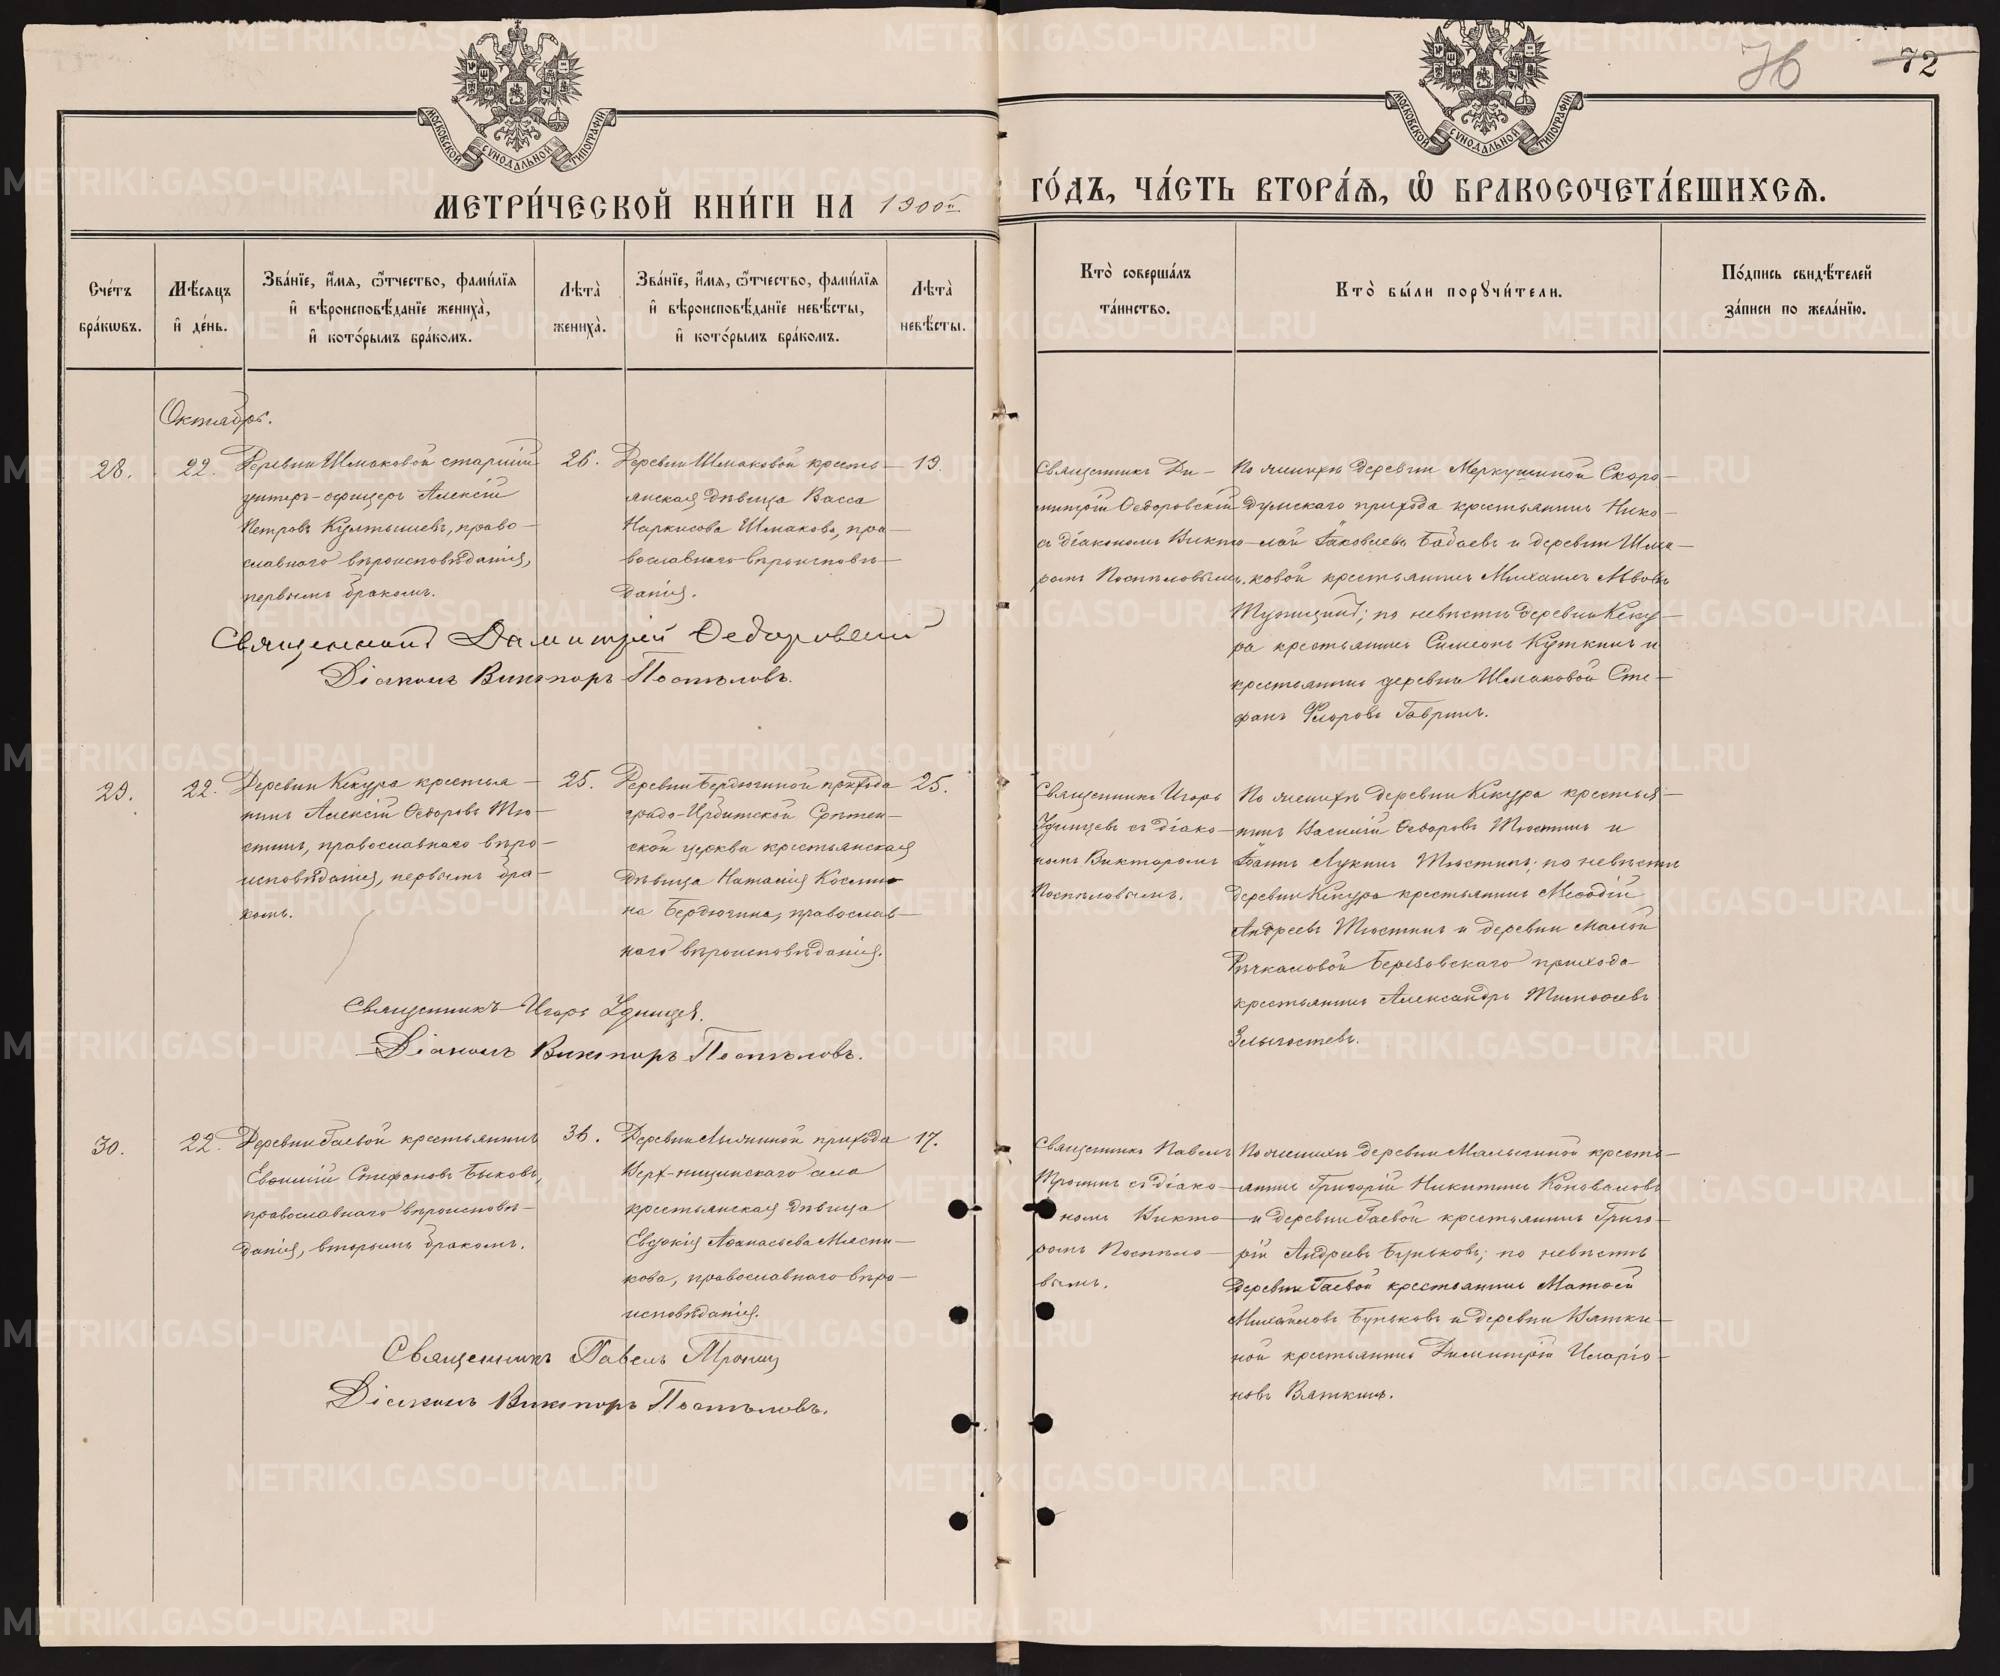 76
72
МОСКОВСКОЙ СУНОДАЛЬНОЙ ТИПОГРАФІИ
МОСКОВСКОЙ СУНОДАЛЬНОЙ ТИПОГРАФІИ
МЕТРИ́ЧЕСКОЙ КНИ́ГИ НА 1900й
ГО́ДЪ, ЧА́СТЬ ВТОРА́Я, Ѡ БРАКОСОЧЕТА́ВШИХСЯ.
Сче́тъ бра́кѡвъ.
Мѣ́сяцъ и҆ де́нь.
Зва́нїе, и҆́мя, ѻ҆́тчество, фами́лїя
и҆ вѣроисповѣ́данїе жениха̀,
и҆ кото́рымъ бра́комъ.
Лѣта̀ жениха̀.
Зва́нїе, и҆́мя, ѻ҆́тчество, фами́лїя
и҆ вѣроисповѣ́данїе невѣ́сты,
и҆ кото́рымъ бра́комъ.
Лѣта̀ невѣ́сты.
Кто̀ соверша́лъ та́инство.
Кто̀ бы́ли порꙋчи́тели.
По́дпись свидѣ́телей за́писи по жела́нїю.
Октябрь.
28.
22.
Деревни Шмаковой старшій
унтеръ-офицеръ Алексій
Петровъ Култышевъ, право-
славнаго вѣроисповѣданія,
первымъ бракомъ.
26.
Деревни Шмаковой кресть-
янская дѣвица Васса
Наркисова Шмакова, пра-
вославнаго вѣроисповѣ-
данія.
19.
Священникъ Ди-
митрій Ѳедоровскій
съ діакономъ Викто-
ромъ Поспѣловымъ.
По женихѣ деревни Меркушиной Скоро-
думскаго прихода крестьянинъ Нико-
лай Іаковлевъ Бабаевъ и деревни Шма-
ковой крестьянинъ Михаилъ Львовъ
по невѣстѣ деревни Кеку-
ра крестьянинъ Симеонъ Куткинъ и
крестьянинъ деревни Шмаковой Сте-
фанъ Флоровъ Гавринъ.
Священникъ Димитрій Ѳедоровскій
Діаконъ Викторъ Поспѣловъ.
29.
22.
Деревни Кекура крестья-
нинъ Алексій Ѳедоровъ Тю-
стинъ, православнаго вѣро-
исповѣданія, первымъ бра-
комъ.
25.
Деревни Бердюгиной прихода
градо-Ирбитской Срѣтен-
ской церкви крестьянская
дѣвица Наталія Косьми-
на Бердюгина, православ-
наго вѣроисповѣданія.
25.
Священникъ Игорь
Удинцевъ съ діако-
номъ Викторомъ
Поспѣловымъ.
По женихѣ деревни Кекура крестья-
нинъ Василій Ѳедоровъ Тюстинъ и
Іоаннъ Лукинъ Тюстинъ; по невѣстѣ
деревни Кекура крестьянинъ Меѳодій
Андреевъ Тюстинъ и деревни Малой
Речкаловой Березовскаго прихода
крестьянинъ Александръ Тимоѳеевъ
Злыгостевъ.
Священникъ Игорь Удинцевъ.
Діаконъ Викторъ Поспѣловъ.
30.
22.
Деревни Гаевой крестьянинъ
Евѳимій Стефановъ Быковъ,
православнаго вѣроисповѣ-
данія, вторымъ бракомъ.
36.
прихода
Верх-ницинскаго села
крестьянская дѣвица
Евдокія Аѳанасьева Мясни-
кова, православнаго вѣро-
исповѣданія.
17.
Священникъ Павелъ
Тронинъ съ діако-
номъ Викто-
ромъ Поспѣло-
вымъ.
По женихѣ деревни Малыгиной кресть-
янинъ Григорій Никитинъ Коноваловъ
и деревни Гаевой крестьянинъ Григо-
рій Андреевъ Буньковъ; по невѣстѣ
деревни Гаевой крестьянинъ Матѳей
Михайловъ Буньковъ и деревни Вятки-
ной крестьянинъ Димитрій Иларіо-
новъ Вяткинъ.
Священникъ Павелъ Тронинъ
Діаконъ Викторъ Поспѣловъ.
METRIKI.GASO-URAL.RU